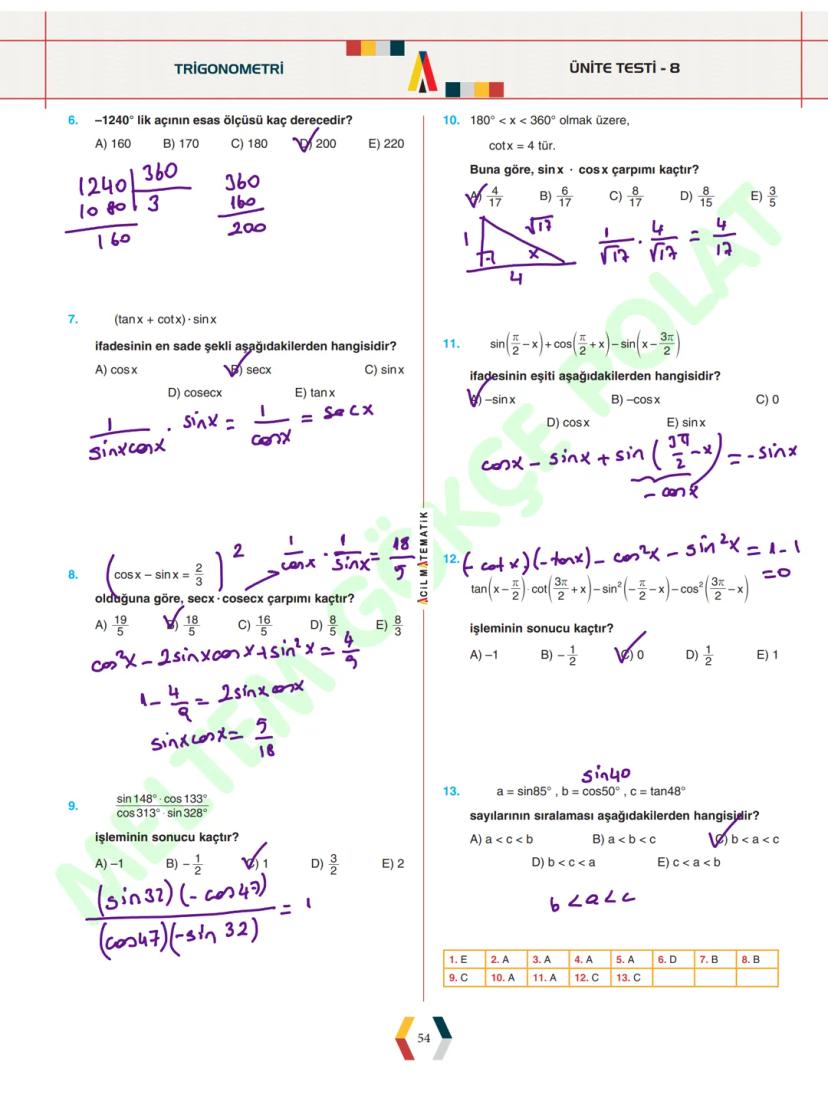 TRİGONOMETRİ
ÜNİTE TESTİ - 8
6. –1240° lik açının esas ölçüsü kaç derecedir?
A) 160 B) 170 C) 180 D) 200 E) 220
1240 360
1080 3
160
360
160
200
7. (tanx + cotx) · sinx
ifadesinin en sade şekli aşağıdakilerden hangisidir?
A) cosx B) secx C) sinx
D) cosecx E) tanx
1/(sinxcosx) · sinx = 1/cosx = secx
8. (cosx – sinx = 2/3)²
1/cosx · 1/sinx = 18/5
olduğuna göre, secx · cosecx çarpımı kaçtır?
A) 19/5 B) 18/5 C) 16/5 D) 8/5 E) 8/3
cos²x – 2sinxcosx + sin²x = 4/9
1 – 4/9 = 2sinxcosx
sinxcosx = 5/18
9. (sin148° · cos133°)/(cos313° · sin328°)
işleminin sonucu kaçtır?
A) –1 B) –1/2 C) 1 D) 3/2 E) 2
(sin32)(–cos47)/(cos47)(–sin32) = 1
10. 180° < x < 360° olmak üzere,
cotx = 4 tür.
Buna göre, sinx · cosx çarpımı kaçtır?
A) 4/17 B) 6/17 C) 8/17 D) 8/15 E) 3/5
1 √17 x 4
1/√17 · 4/√17 = 4/17
11. sin(π/2 – x) + cos(π/2 + x) – sin(x – 3π/2)
ifadesinin eşiti aşağıdakilerden hangisidir?
A) –sinx B) –cosx C) 0
D) cosx E) sinx
cosx – sinx + sin(3π/2 – x) = –sinx
–cosx
12. (–cotx)(–tanx) – cos²x – sin²x = 1–1
=0
tan(x – π/2) · cot(3π/2 + x) – sin²(–π/2 – x) – cos²(3π/2 – x)
işleminin sonucu kaçtır?
A) –1 B) –1/2 C) 0 D) 1/2 E) 1
sin40
13. a = sin85° , b = cos50° , c = tan48°
sayılarının sıralaması aşağıdakilerden hangisidir?
A) a < c < b B) a < b < c C) b < a < c
D) b < c < a E) c < a < b
b<a<c
1. E 2. A 3. A 4. A 5. A 6. D 7. B 8. B
9. C 10. A 11. A 12. C 13. C
ACİL MATEMATİK
MELTEM GÖKÇE POLAT
54